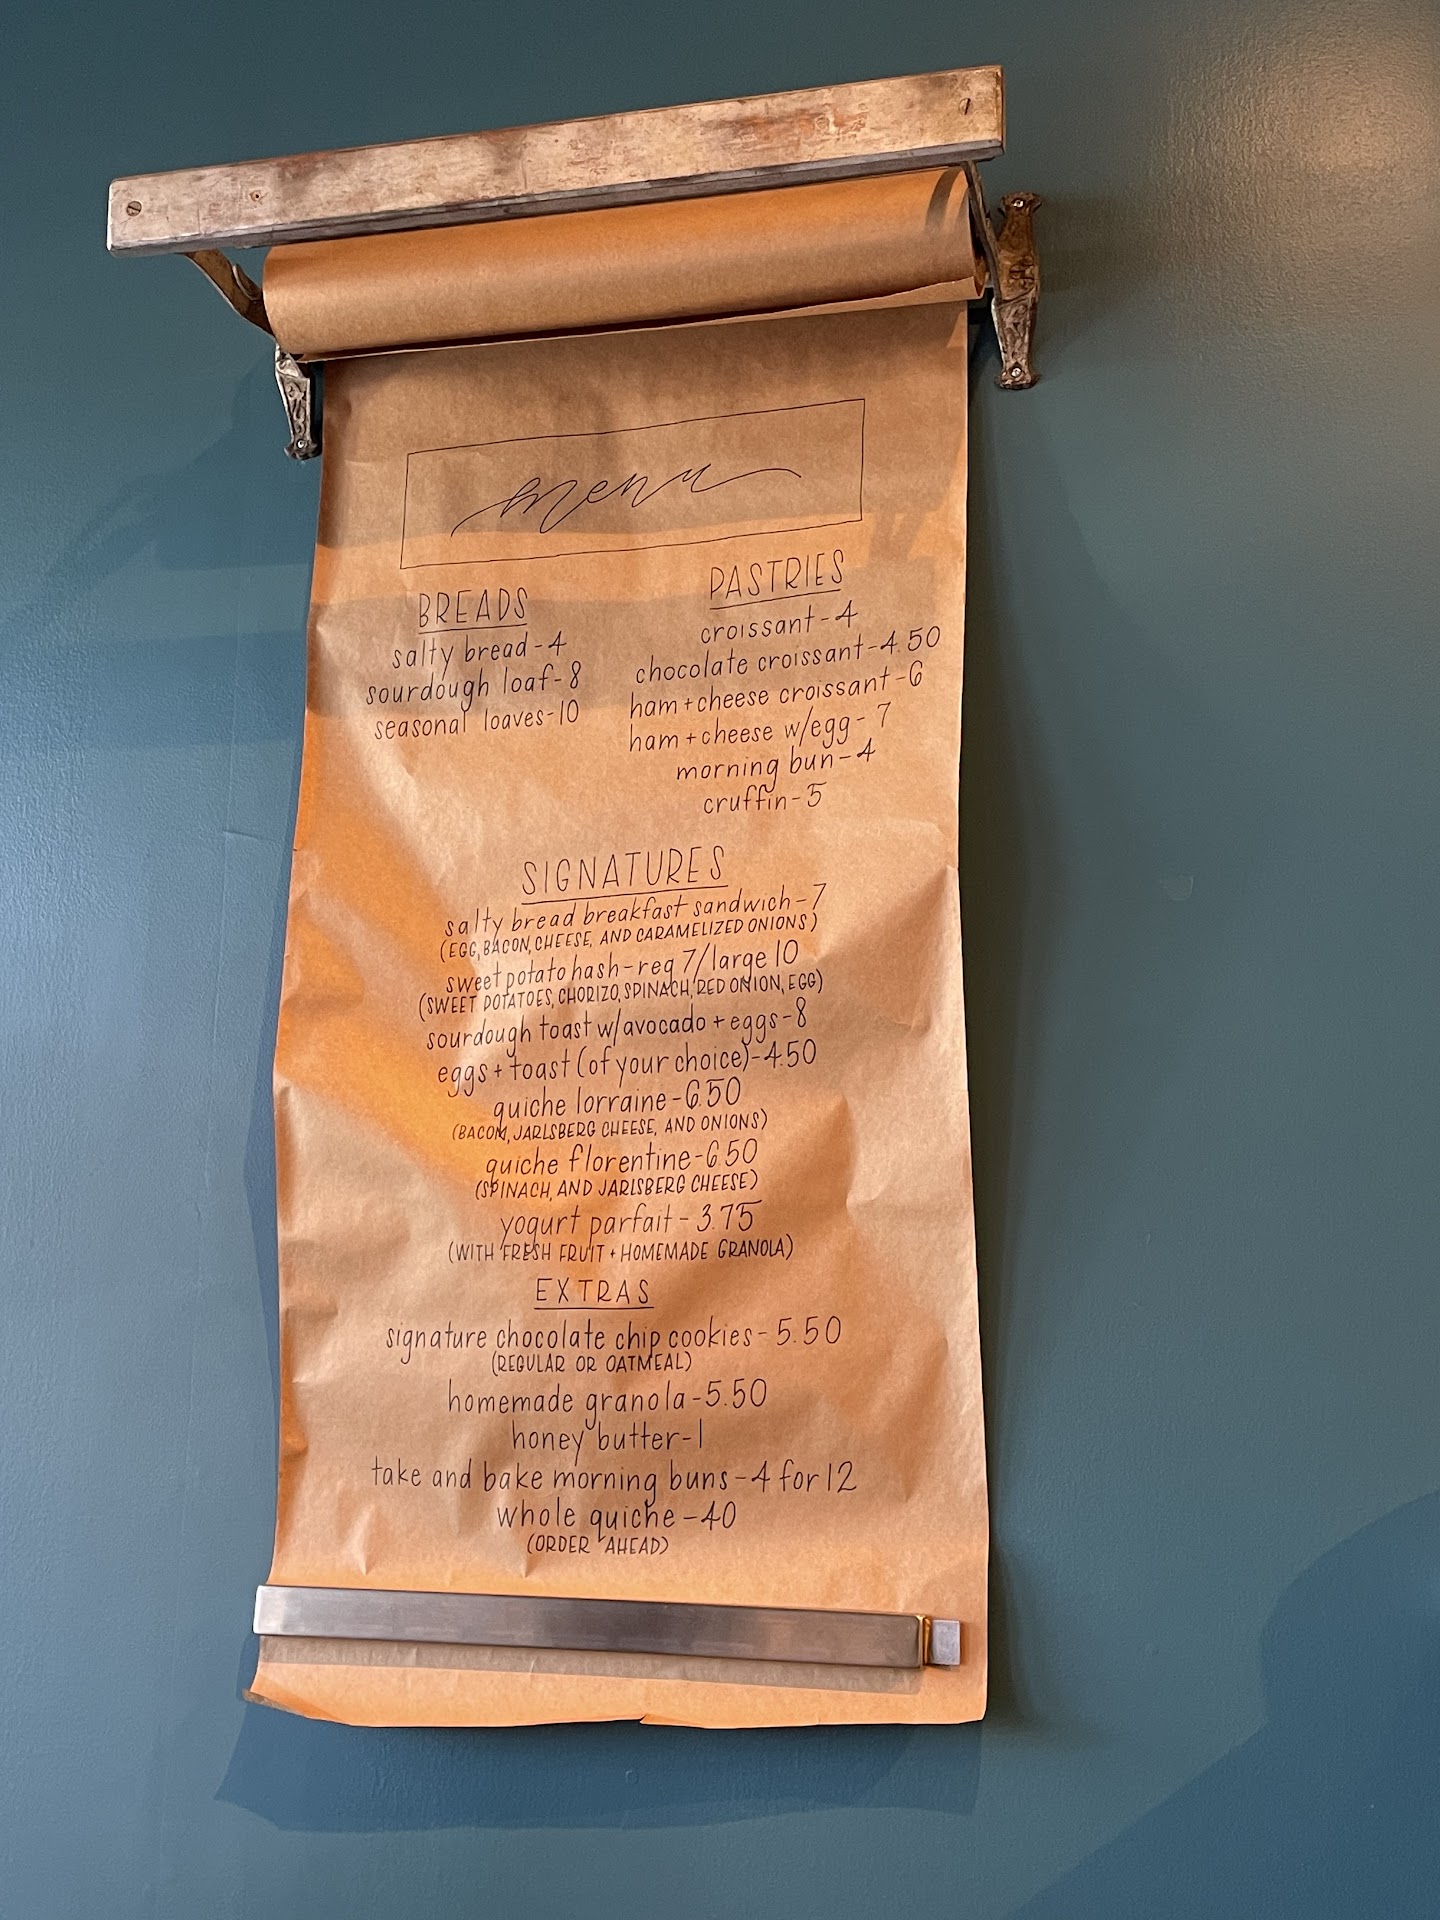 menu
BREADS
salty bread-4
sourdough loaf-8
seasonal loaves-10
PASTRIES
croissant-4
chocolate croissant-4.50
ham+cheese croissant-6
ham+cheese w/egg-7
morning bun-4
cruffin-5
SIGNATURES
salty bread breakfast sandwich-7
(EGG, BACON, CHEESE, AND CARAMELIZED ONIONS)
sweet potato hash-reg 7/large 10
(SWEET POTATOES, CHORIZO, SPINACH, RED ONION, EGG)
sourdough toast w/avocado+eggs-8
eggs+toast (of your choice)-4.50
quiche lorraine-6.50
(BACON, JARLSBERG CHEESE, AND ONIONS)
quiche florentine-6.50
(SPINACH, AND JARLSBERG CHEESE)
yogurt parfait-3.75
(WITH FRESH FRUIT + HOMEMADE GRANOLA)
EXTRAS
signature chocolate chip cookies-5.50
(REGULAR OR OATMEAL)
homemade granola-5.50
honey butter-1
take and bake morning buns-4 for 12
whole quiche-40
(ORDER AHEAD)